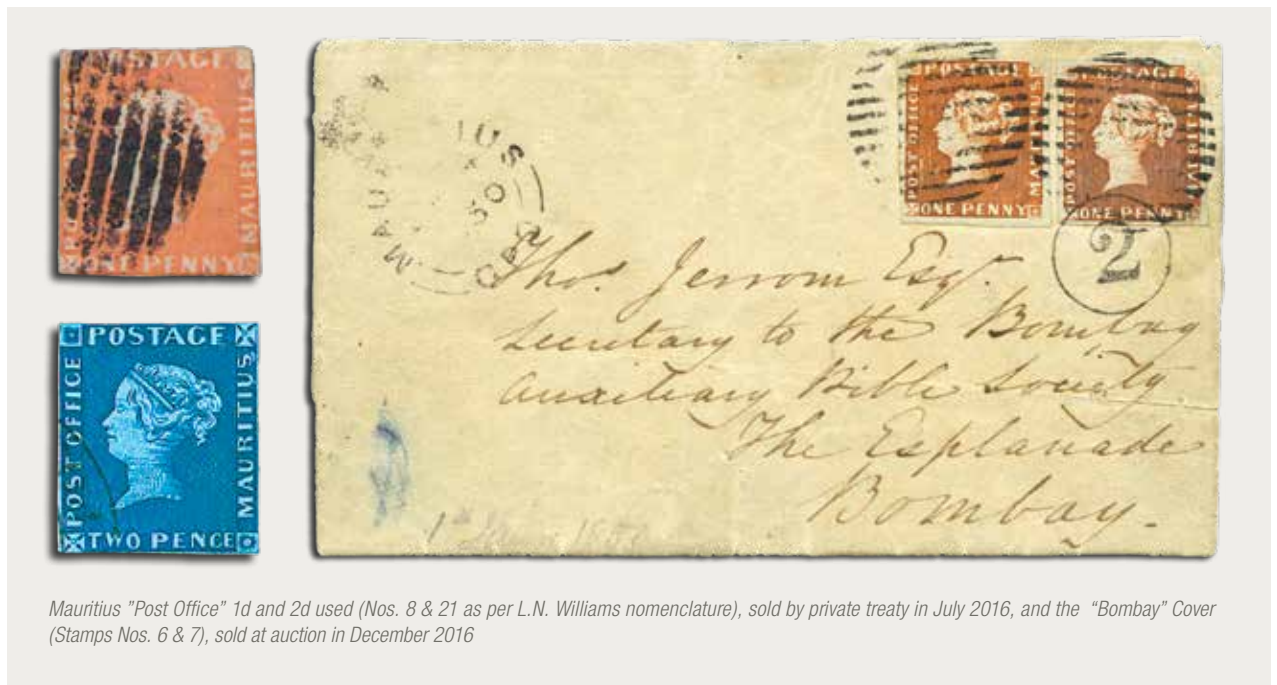 POSTAGE
MAURITIUS
ONE PENNY
POSTAGE
POST OFFICE
MAURITIUS
TWO PENCE
POSTAGE
POST OFFICE
MAURITIUS
ONE PENNY
POSTAGE
POST OFFICE
MAURITIUS
ONE PENNY
2
Thos. Jerrom Esqr.
Secretary to the Bombay
Auxiliary Bible Society
The Esplanade
Bombay.
Mauritius ”Post Office” 1d and 2d used (Nos. 8 & 21 as per L.N. Williams nomenclature), sold by private treaty in July 2016, and the “Bombay” Cover
(Stamps Nos. 6 & 7), sold at auction in December 2016